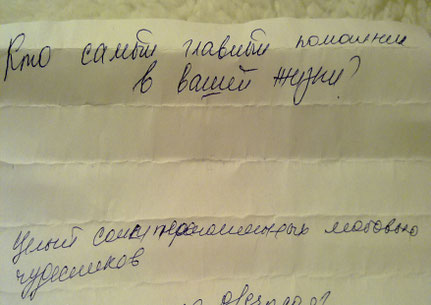 Кто самый главный помощник
в вашей жизни?
Целый сонм переполненных любовью
чудесников